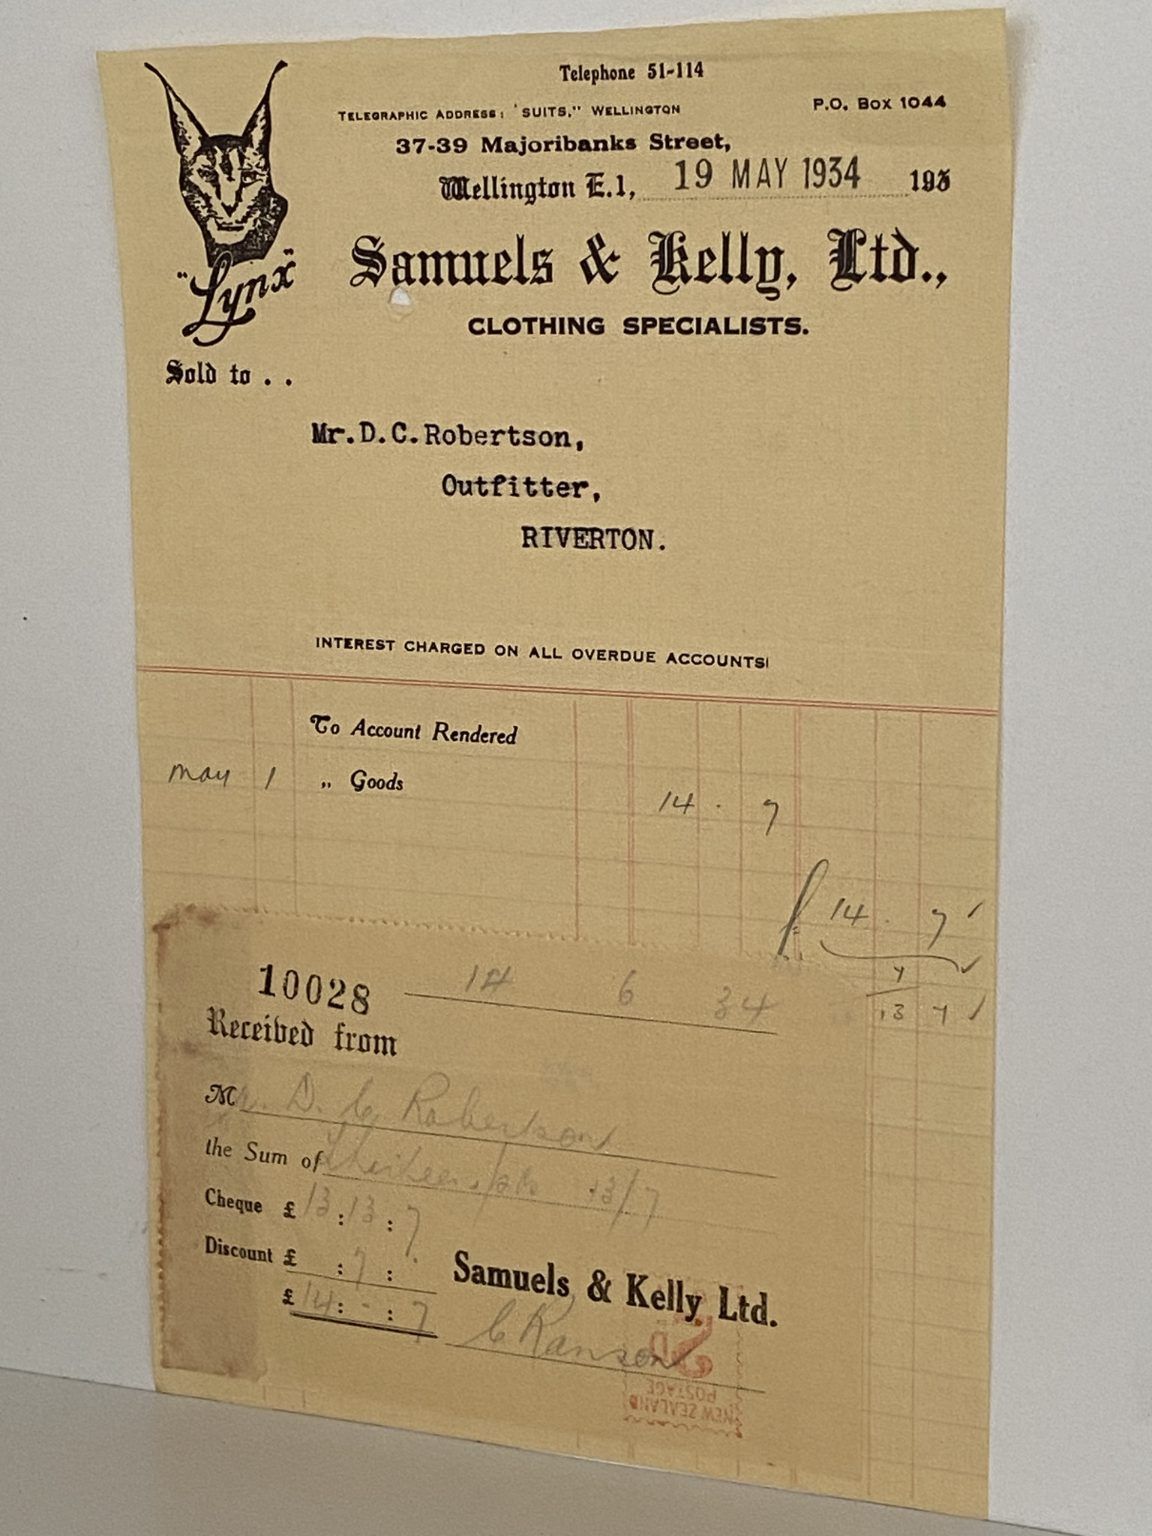 Telephone 51-114
TELEGRAPHIC ADDRESS: 'SUITS," WELLINGTON
P.O. Box 1044
37-39 Majoribanks Street,
Wellington E.1, 19 MAY 1934 193
"Lynx"
Samuels & Kelly, Ltd.,
CLOTHING SPECIALISTS.
Sold to . .
Mr.D.C.Robertson,
Outfitter,
RIVERTON.
INTEREST CHARGED ON ALL OVERDUE ACCOUNTS
To Account Rendered
May 1 „ Goods
14 . 7
£ 14 . 7
7
13 13 7
10028 14 6 34
Received from
Mr. D. C. Robertson
the Sum of thirteen pds 13/7
Cheque £ 13 : 13 : 7
Discount £ : 7 :
£ 14 : - : 7
Samuels & Kelly Ltd.
C Ranson
2D
NEW ZEALAND
POSTAGE